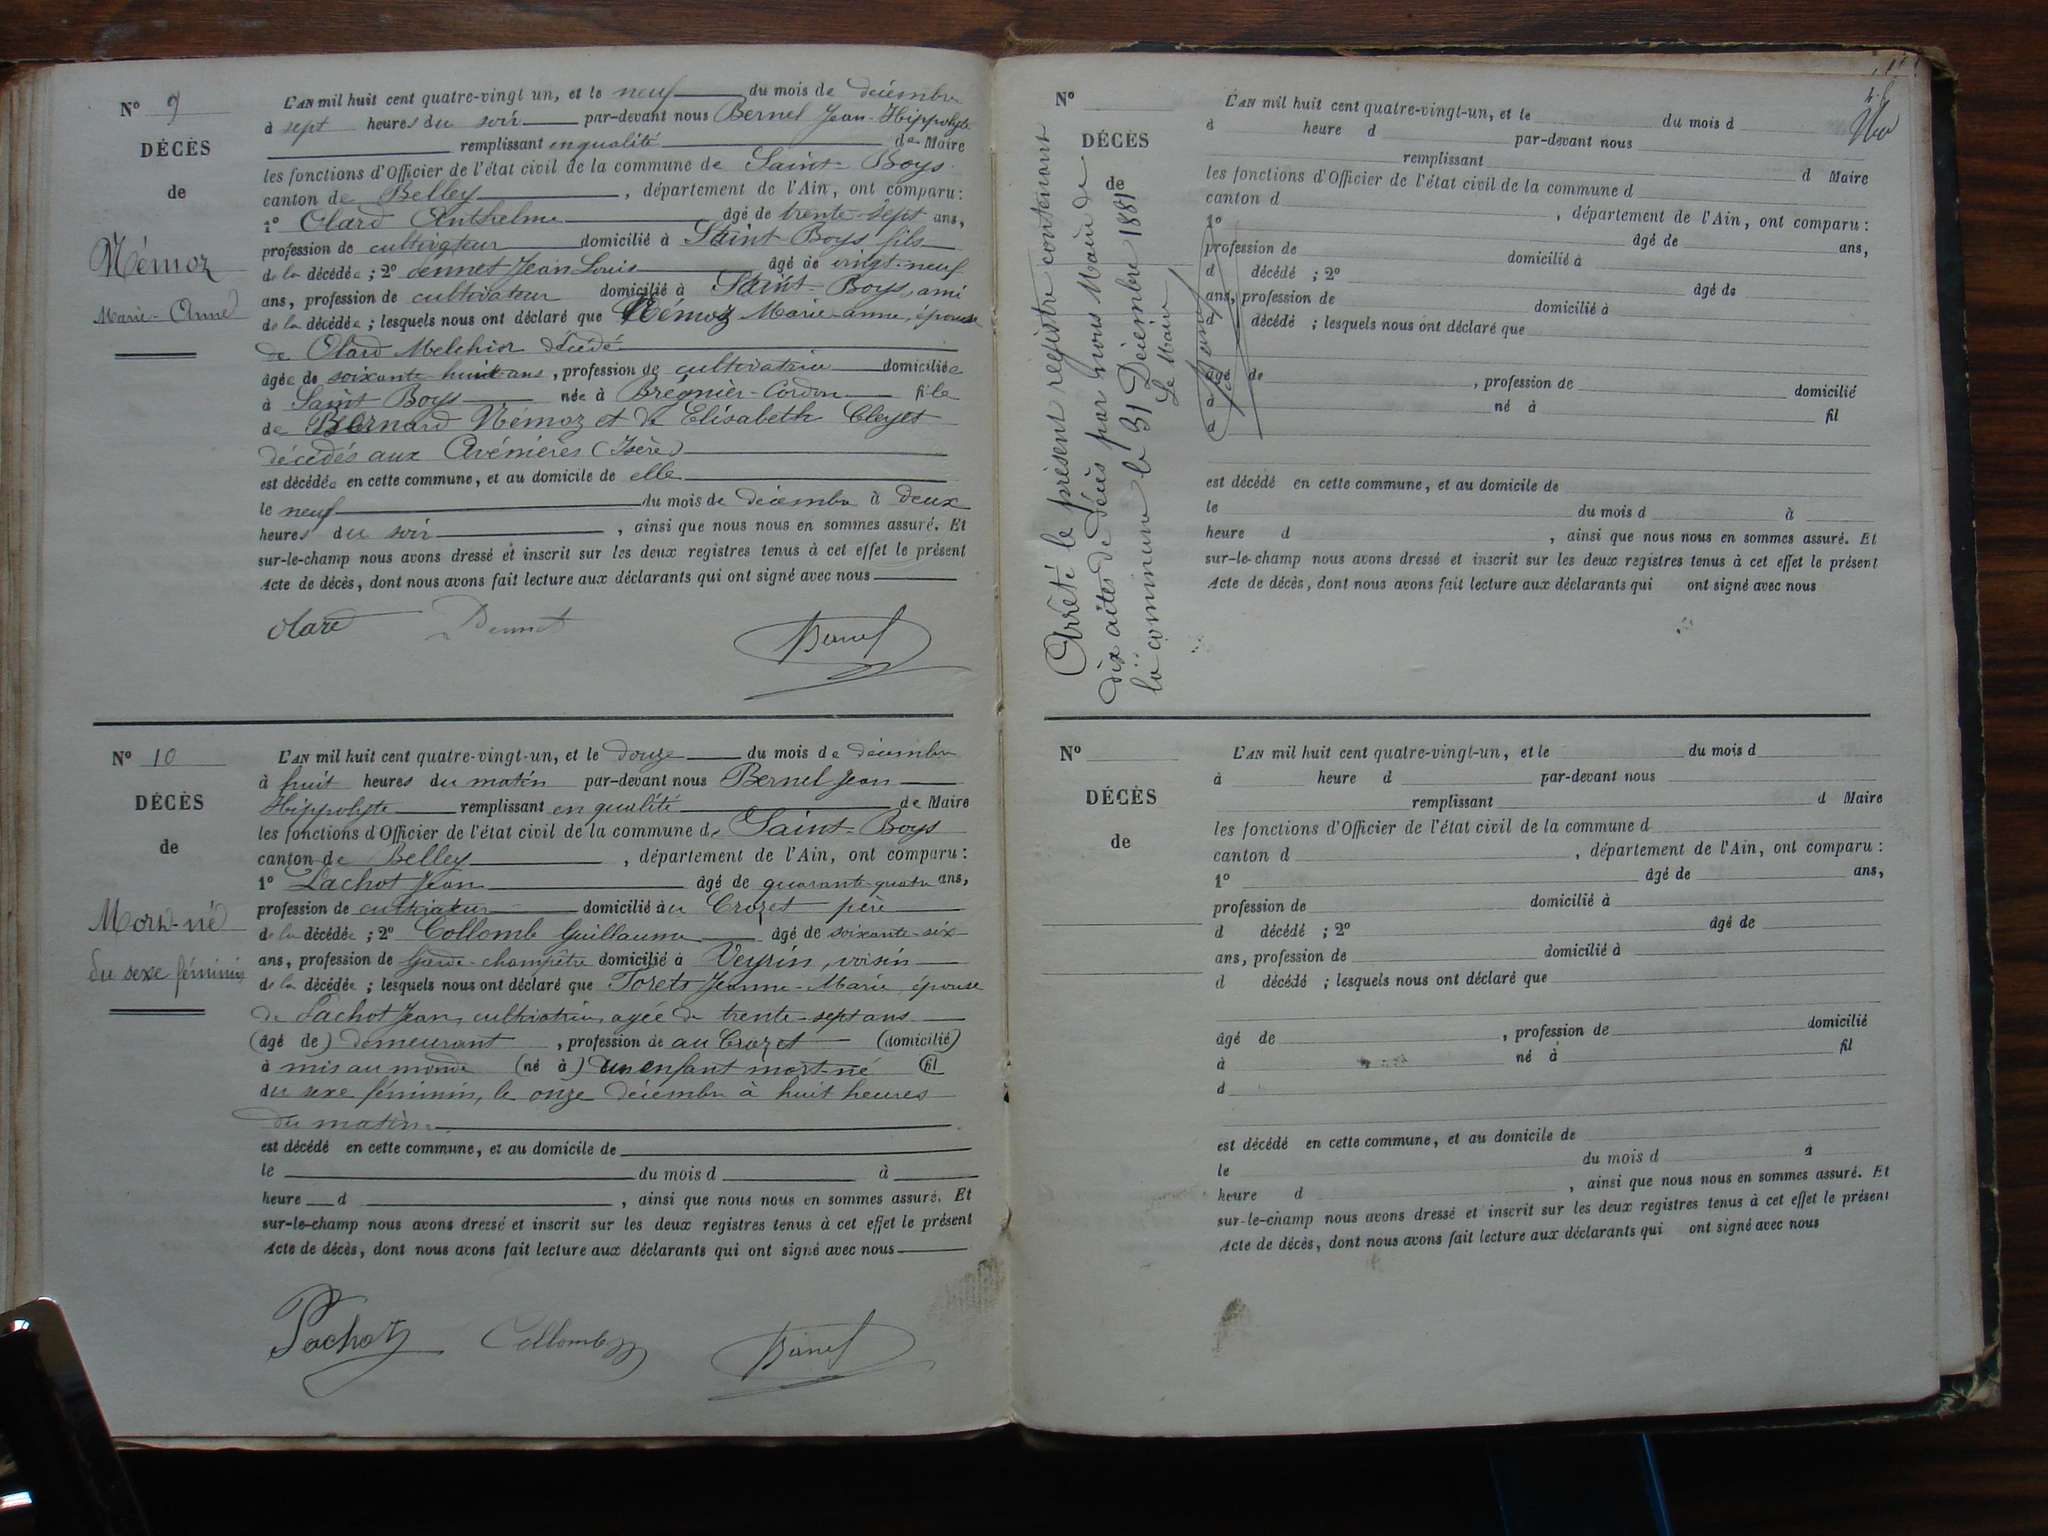 N° 9
DÉCÈS
de
Némoz
Marie-Anne
L'AN mil huit cent quatre-vingt un, et le neuf du mois de décembre
à sept heures du soir par-devant nous Bernel Jean-Hippolyte
remplissant en qualité de Maire
les fonctions d'Officier de l'état civil de la commune de Saint-Boys
canton de Belley, département de l'Ain, ont comparu:
1° Olard Anthelme âgé de trente-sept ans,
profession de cultivateur domicilié à Saint-Boys fils
de la décédée; 2° Jean Louis âgé de vingt-neuf
ans, profession de cultivateur domicilié à Saint-Boys, ami
de la décédée; lesquels nous ont déclaré que Némoz Marie-anne, épouse
de Olard Melchior décédé
âgée de soixante-huit ans, profession de cultivatrice domiciliée
à Saint Boys née à Brégnier-Cordon fille
de Bernard Némoz et de Elisabeth Cleyet
décédés aux Avénières (Isère)
est décédée en cette commune, et au domicile de elle
le neuf du mois de décembre à deux
heures du soir, ainsi que nous nous en sommes assuré. Et
sur-le-champ nous avons dressé et inscrit sur les deux registres tenus à cet effet le présent
Acte de décès, dont nous avons fait lecture aux déclarants qui ont signé avec nous
olard Bernel
N° 10
DÉCÈS
de
Mort-né
du sexe féminin
L'AN mil huit cent quatre-vingt-un, et le douze du mois de décembre
à huit heures du matin par-devant nous Bernel Jean
Hippolyte remplissant en qualité de Maire
les fonctions d'Officier de l'état civil de la commune de Saint-Boys
canton de Belley, département de l'Ain, ont comparu:
1° Pachot Jean âgé de quarante-quatre ans,
profession de cultivateur domicilié au Crozet père
de la décédée; 2° Collomb Guillaume âgé de soixante-six
ans, profession de Garde-champêtre domicilié à Veyrin, voisin
de la décédée; lesquels nous ont déclaré que Jeanne-Marie, épouse
de Pachot Jean, cultivatrice, agée de trente-sept ans
(âgé de) demeurant, profession de au Crozet (domicilié)
à mis au monde (né à) un enfant mort-né (fil)
du sexe féminin, le onze décembre à huit heures
du matin
est décédé en cette commune, et au domicile de
le du mois d à
heure d, ainsi que nous nous en sommes assuré. Et
sur-le-champ nous avons dressé et inscrit sur les deux registres tenus à cet effet le présent
Acte de décès, dont nous avons fait lecture aux déclarants qui ont signé avec nous
Pachot Collomb Bernel
N°
DÉCÈS
de
Arrêté le présent registre contenant
dix actes de décès par nous Maire de
la commune le 31 Décembre 1881
Le Maire
Bernel
L'AN mil huit cent quatre-vingt-un, et le du mois d
à heure d par-devant nous
remplissant d Maire
les fonctions d'Officier de l'état civil de la commune d
canton d, département de l'Ain, ont comparu:
1° âgé de ans,
profession de domicilié à
d décédé; 2° âgé de
ans, profession de domicilié à
d décédé; lesquels nous ont déclaré que
âgé de, profession de domicilié
à né à fil
d
est décédé en cette commune, et au domicile de
le du mois d à
heure d, ainsi que nous nous en sommes assuré. Et
sur-le-champ nous avons dressé et inscrit sur les deux registres tenus à cet effet le présent
Acte de décès, dont nous avons fait lecture aux déclarants qui ont signé avec nous
N°
DÉCÈS
de
L'AN mil huit cent quatre-vingt-un, et le du mois d
à heure d par-devant nous
remplissant d Maire
les fonctions d'Officier de l'état civil de la commune d
canton d, département de l'Ain, ont comparu:
1° âgé de ans,
profession de domicilié à
d décédé; 2° âgé de
ans, profession de domicilié à
d décédé; lesquels nous ont déclaré que
âgé de, profession de domicilié
à né à fil
d
est décédé en cette commune, et au domicile de
le du mois d à
heure d, ainsi que nous nous en sommes assuré. Et
sur-le-champ nous avons dressé et inscrit sur les deux registres tenus à cet effet le présent
Acte de décès, dont nous avons fait lecture aux déclarants qui ont signé avec nous